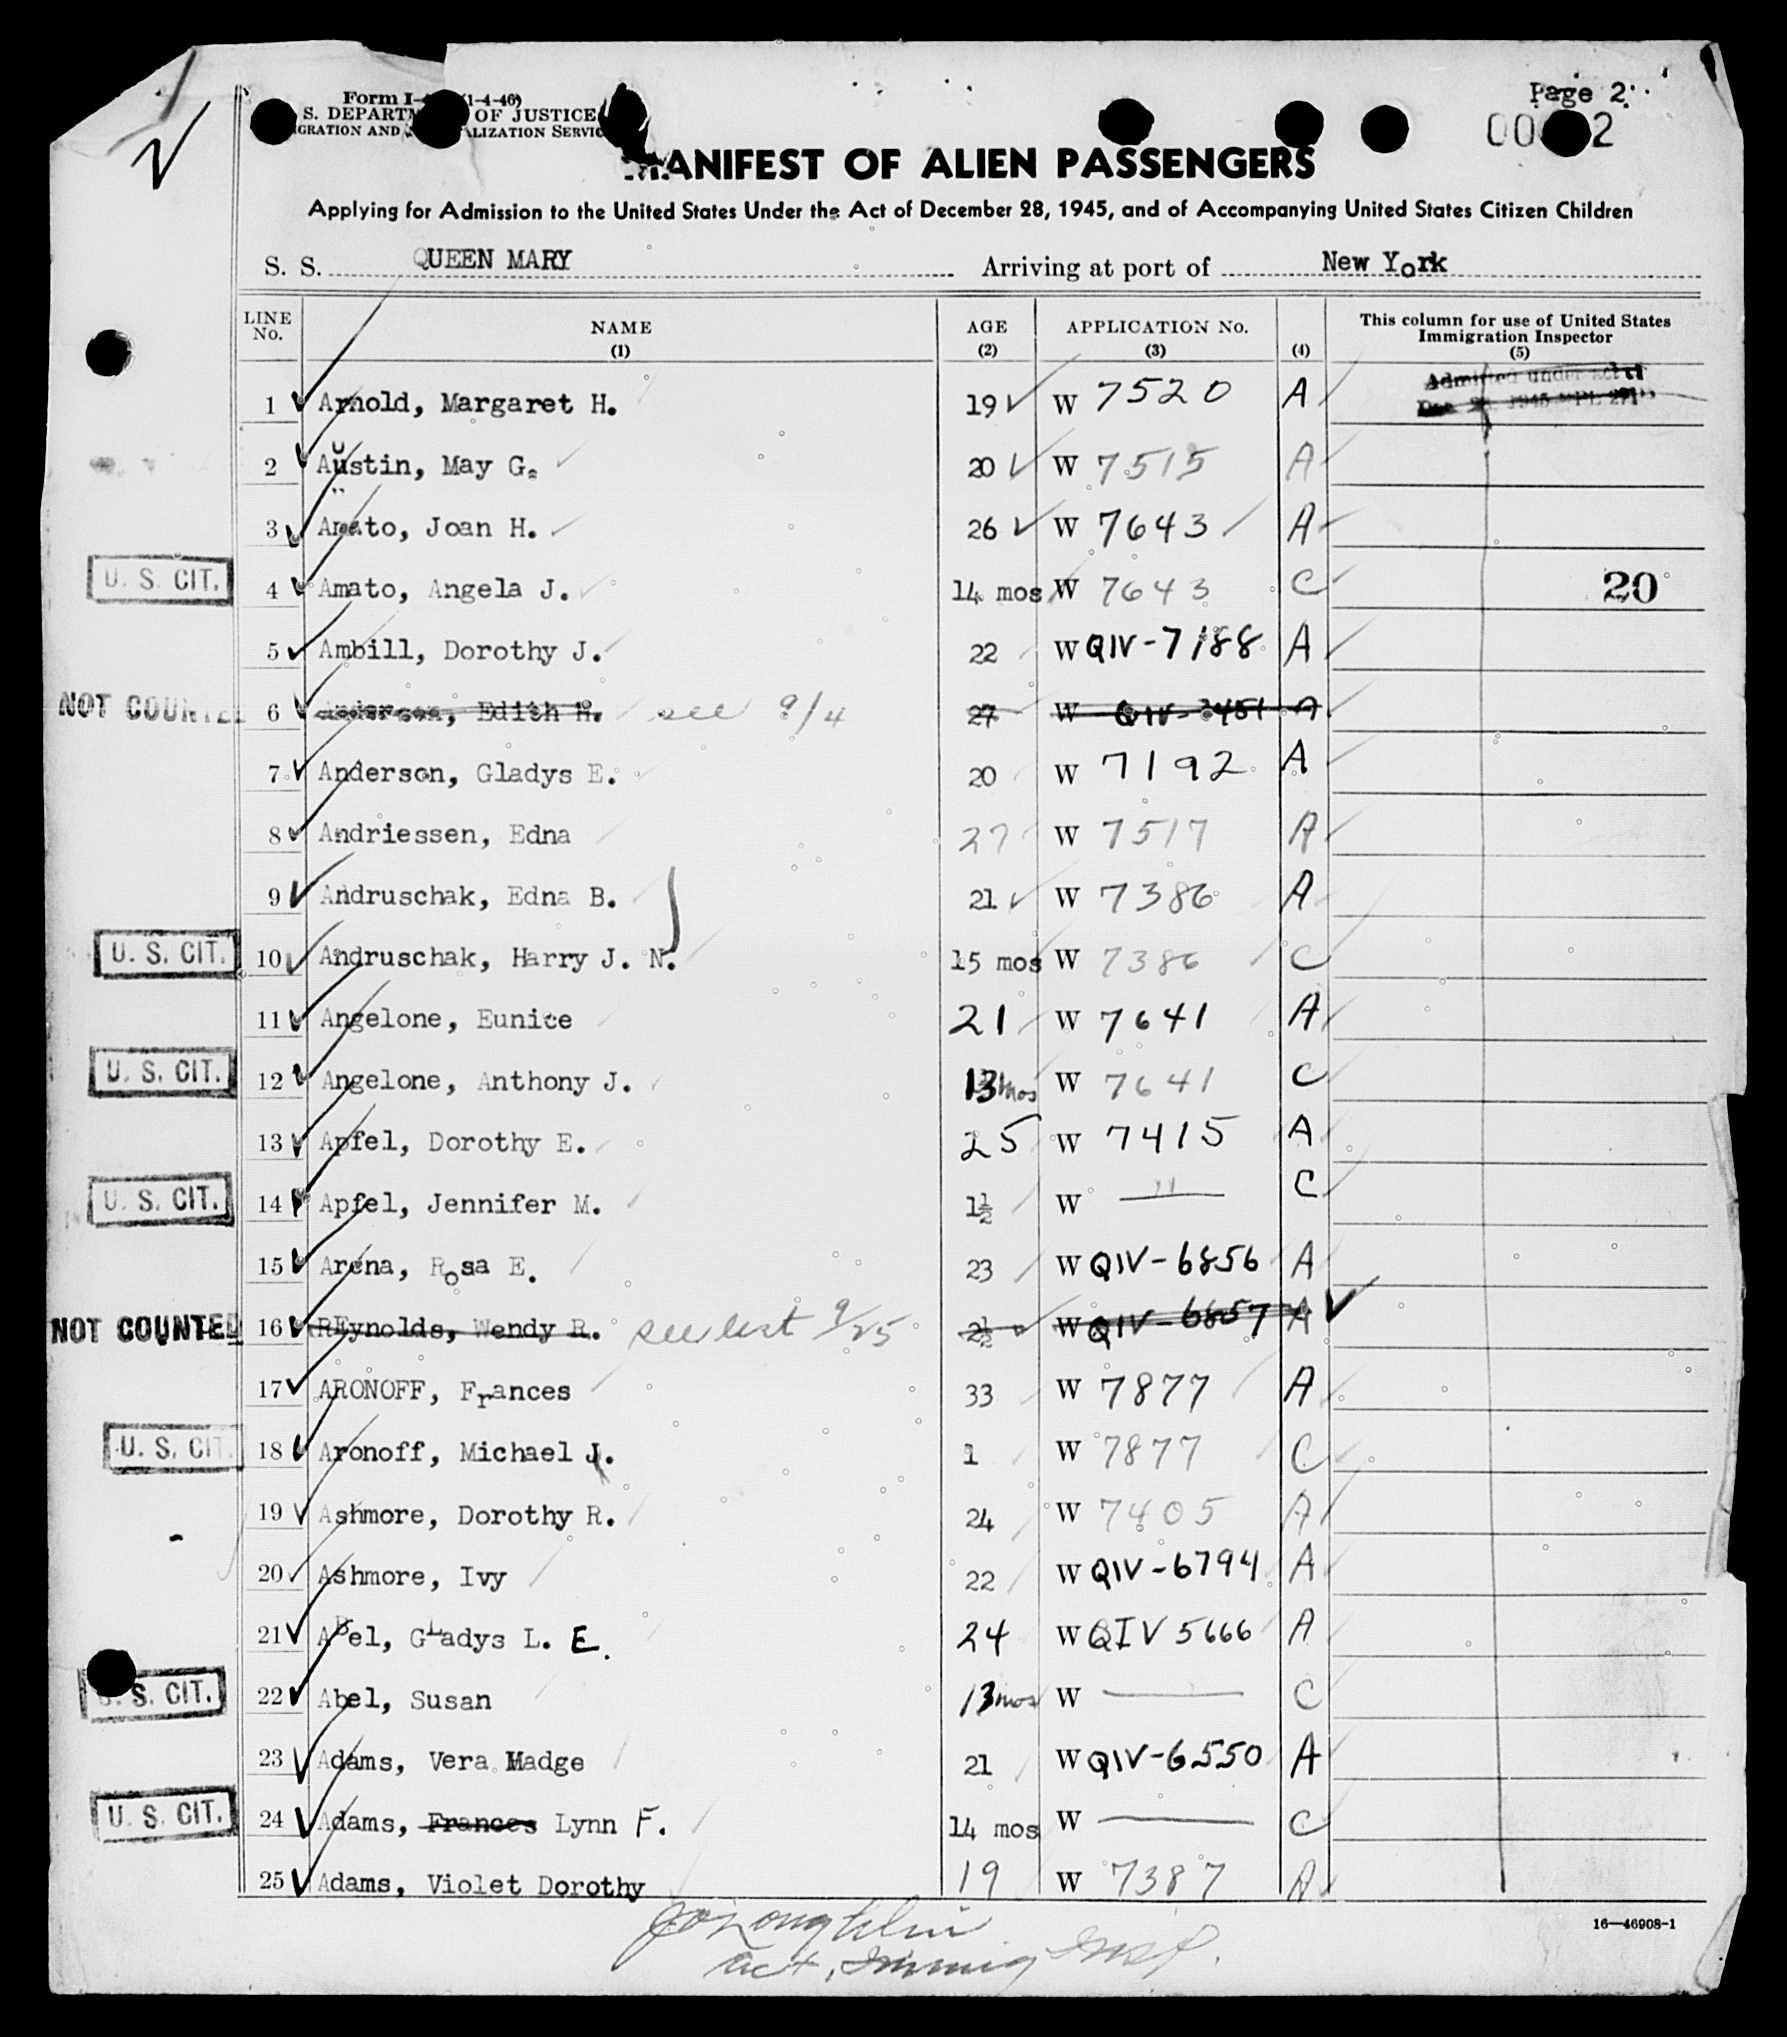 Page 2
Form I- (1-4-46)
S. DEPARTM OF JUSTICE
IGRATION AND ALIZATION SERVIC
00 2
MANIFEST OF ALIEN PASSENGERS
Applying for Admission to the United States Under the Act of December 28, 1945, and of Accompanying United States Citizen Children
S. S. QUEEN MARY Arriving at port of New York
LINE No. NAME (1) AGE (2) APPLICATION No. (3) (4) This column for use of United States Immigration Inspector (5)
1 Arnold, Margaret H. 19 W 7520 A Admitted under act of
Dec 28, 1945 PL 271
2 Austin, May G. 20 W 7515 A
3 Amato, Joan H. 26 W 7643 A
U. S. CIT. 4 Amato, Angela J. 14 mos W 7643 C 20
5 Ambill, Dorothy J. 22 W QIV-7188 A
NOT COUNTED 6 Anderson, Edith H. see 9/4 27 W QIV-7451 A
7 Anderson, Gladys E. 20 W 7192 A
8 Andriessen, Edna 27 W 7517 A
9 Andruschak, Edna B. 21 W 7386 A
U. S. CIT. 10 Andruschak, Harry J. N. 15 mos W 7386 C
11 Angelone, Eunice 21 W 7641 A
U. S. CIT. 12 Angelone, Anthony J. 13 mos W 7641 C
13 Apfel, Dorothy E. 25 W 7415 A
U. S. CIT. 14 Apfel, Jennifer M. 1½ W " C
15 Arena, Rosa E. 23 W QIV-6856 A
NOT COUNTED 16 REynolds, Wendy R. see list 9/25 2½ W QIV-6857 A
17 ARONOFF, Frances 33 W 7877 A
U. S. CIT. 18 Aronoff, Michael J. 1 W 7877 C
19 Ashmore, Dorothy R. 24 W 7405 A
20 Ashmore, Ivy 22 W QIV-6794 A
21 ABel, GLadys L. E. 24 W QIV 5666 A
U. S. CIT. 22 Abel, Susan 13 mos W — C
23 Adams, Vera Madge 21 W QIV-6550 A
U. S. CIT. 24 Adams, Frances Lynn F. 14 mos W — C
25 Adams, Violet Dorothy 19 W 7387 A
16—46908-1
act. Immig Insp.